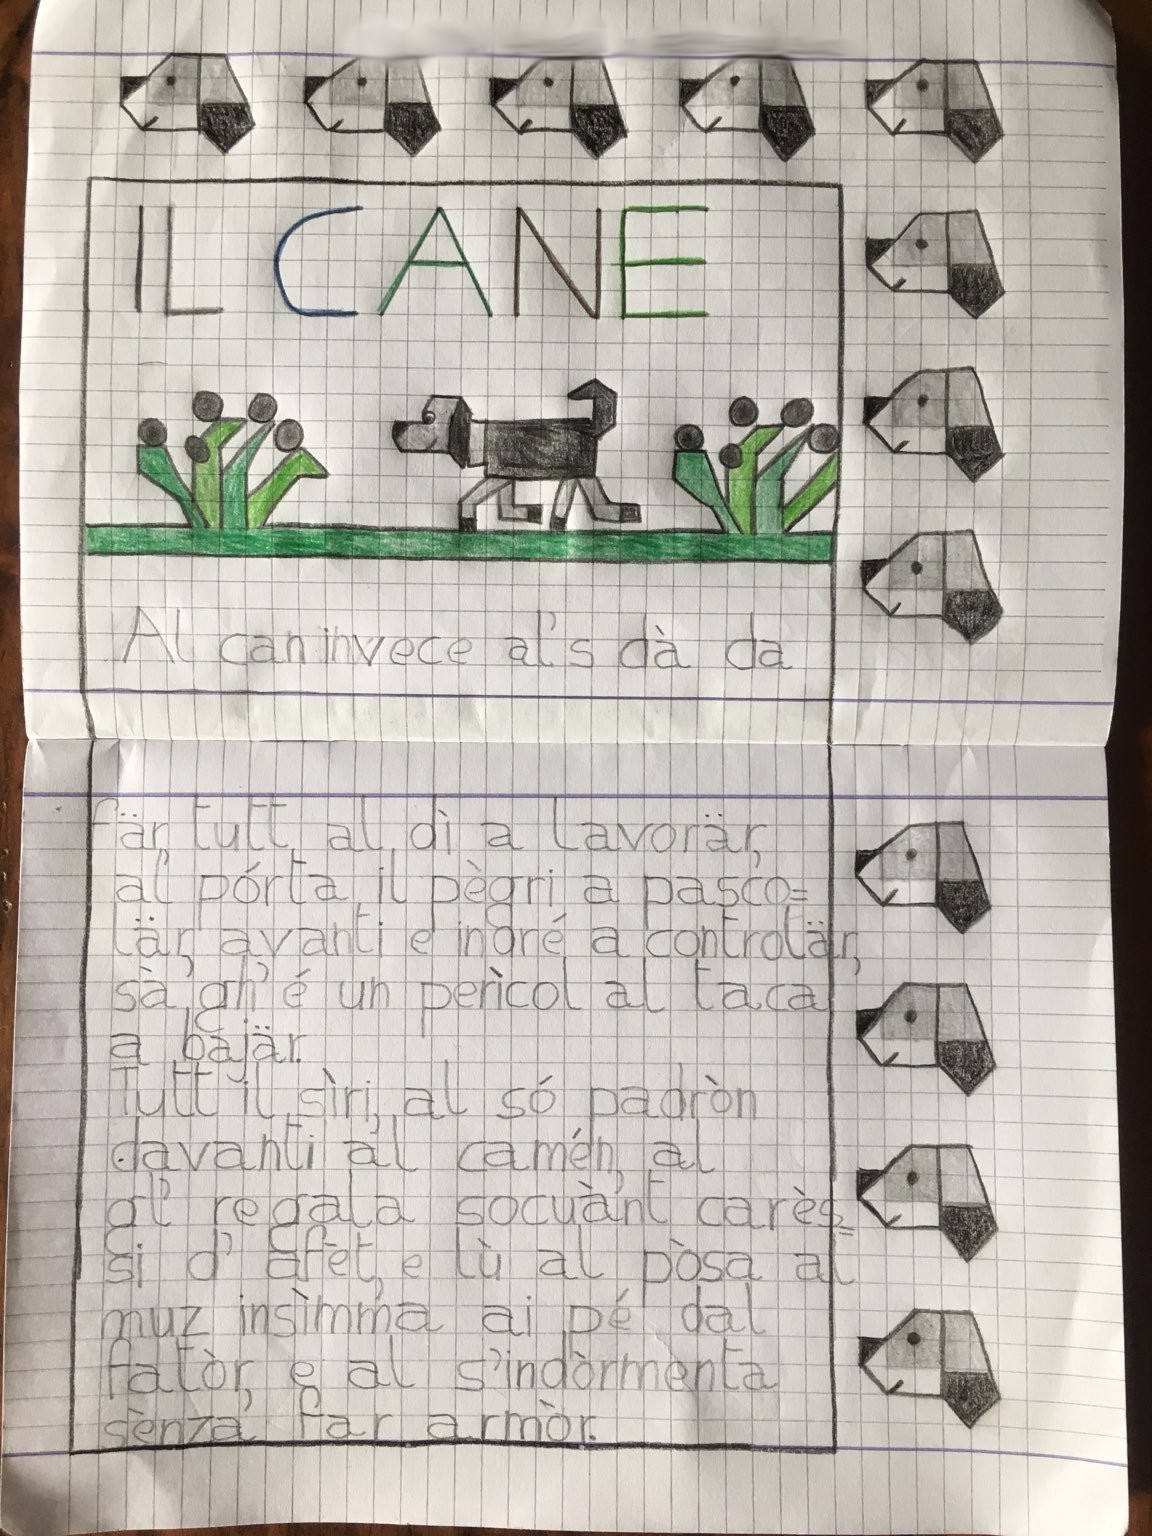 IL CANE
Al can invece al's dà da
fär, tutt al dì a lavorär,
al pórta il pègri a pasco=
lär, avanti e indré a controlär,
sà gh'é un perìcol al taca
a bajär.
Tutt il sìri, al só padròn
davanti al camén, al
gl' regala socuànt carès=
si d' afèt, e lù al pòsa al
muz insìmma ai pé dal
fatòr, e al s'indòrmenta
sènza far armòr.